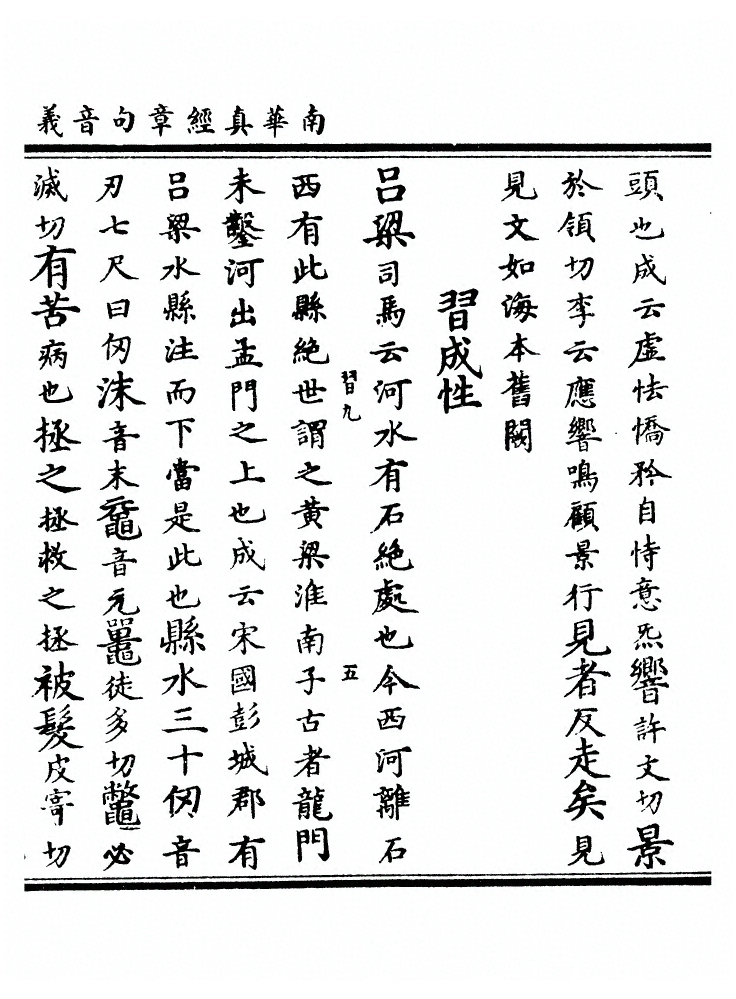 南華真經章句音義
頭也成云虛怯憍矜自恃意炁響許文切景
於領切李云應響鳴顧景行見者反走矣見
見文如海本舊闕
習成性
呂梁司馬云河水有石絕處也今西河離石
習九
五
西有此縣絕世謂之黃梁淮南子古者龍門
未鑿河出孟門之上也成云宋國彭城郡有
呂梁水縣注而下當是此也縣水三十仞音
刃七尺曰仞沫音末黿音元鼉徒多切鼈必
滅切有苦病也拯之拯救之拯被髮皮寄切